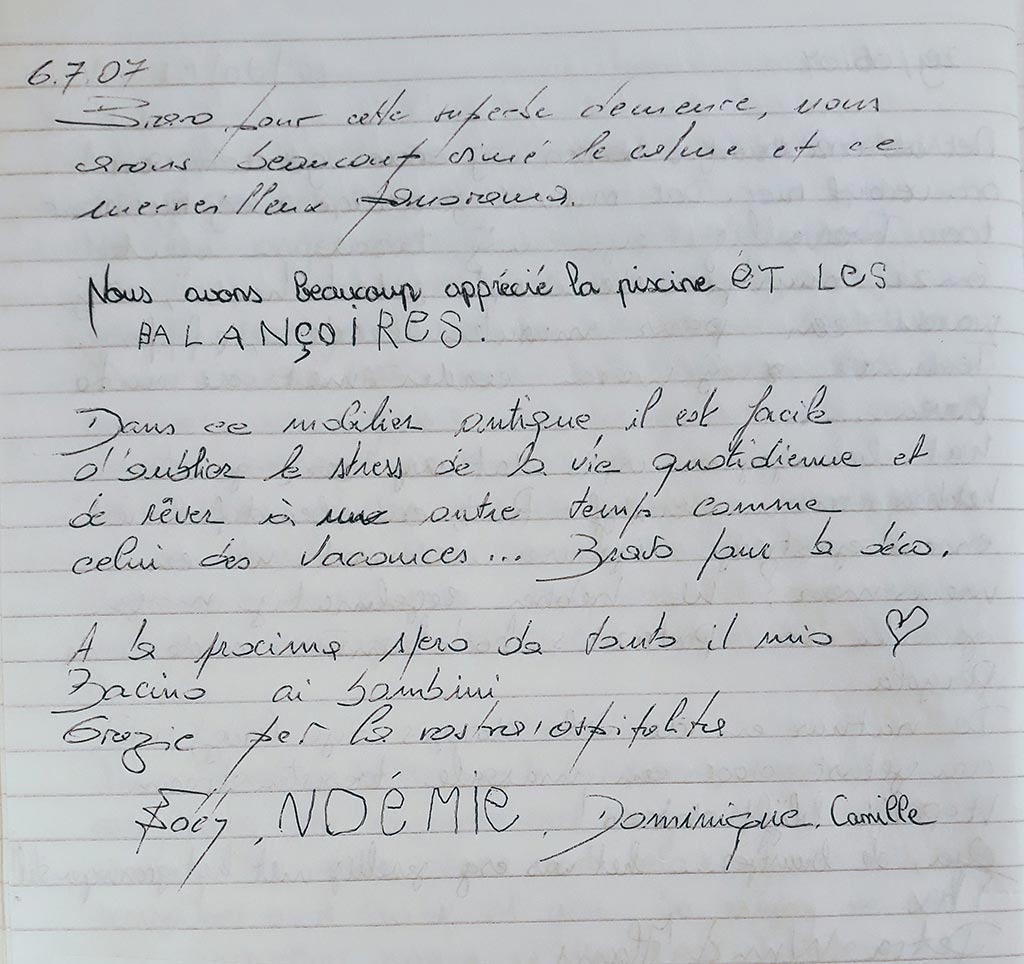 6.7.07
Bravo pour cette superbe demeure, nous
avons beaucoup aimé le calme et ce
merveilleux panorama.
Nous avons beaucoup apprécié la piscine ÉT LES
BALANÇOIRES.
Dans ce mobilier antique il est facile
d'oublier le stress de la vie quotidienne et
de rêver à autre temp comme
celui des vacances... Bravo pour la déco.
A la procima spero da tanto il mio ♡
Bacino ai bambini
Grazie per la vostra ospitalita
NOÉMIE, Dominique, Camille